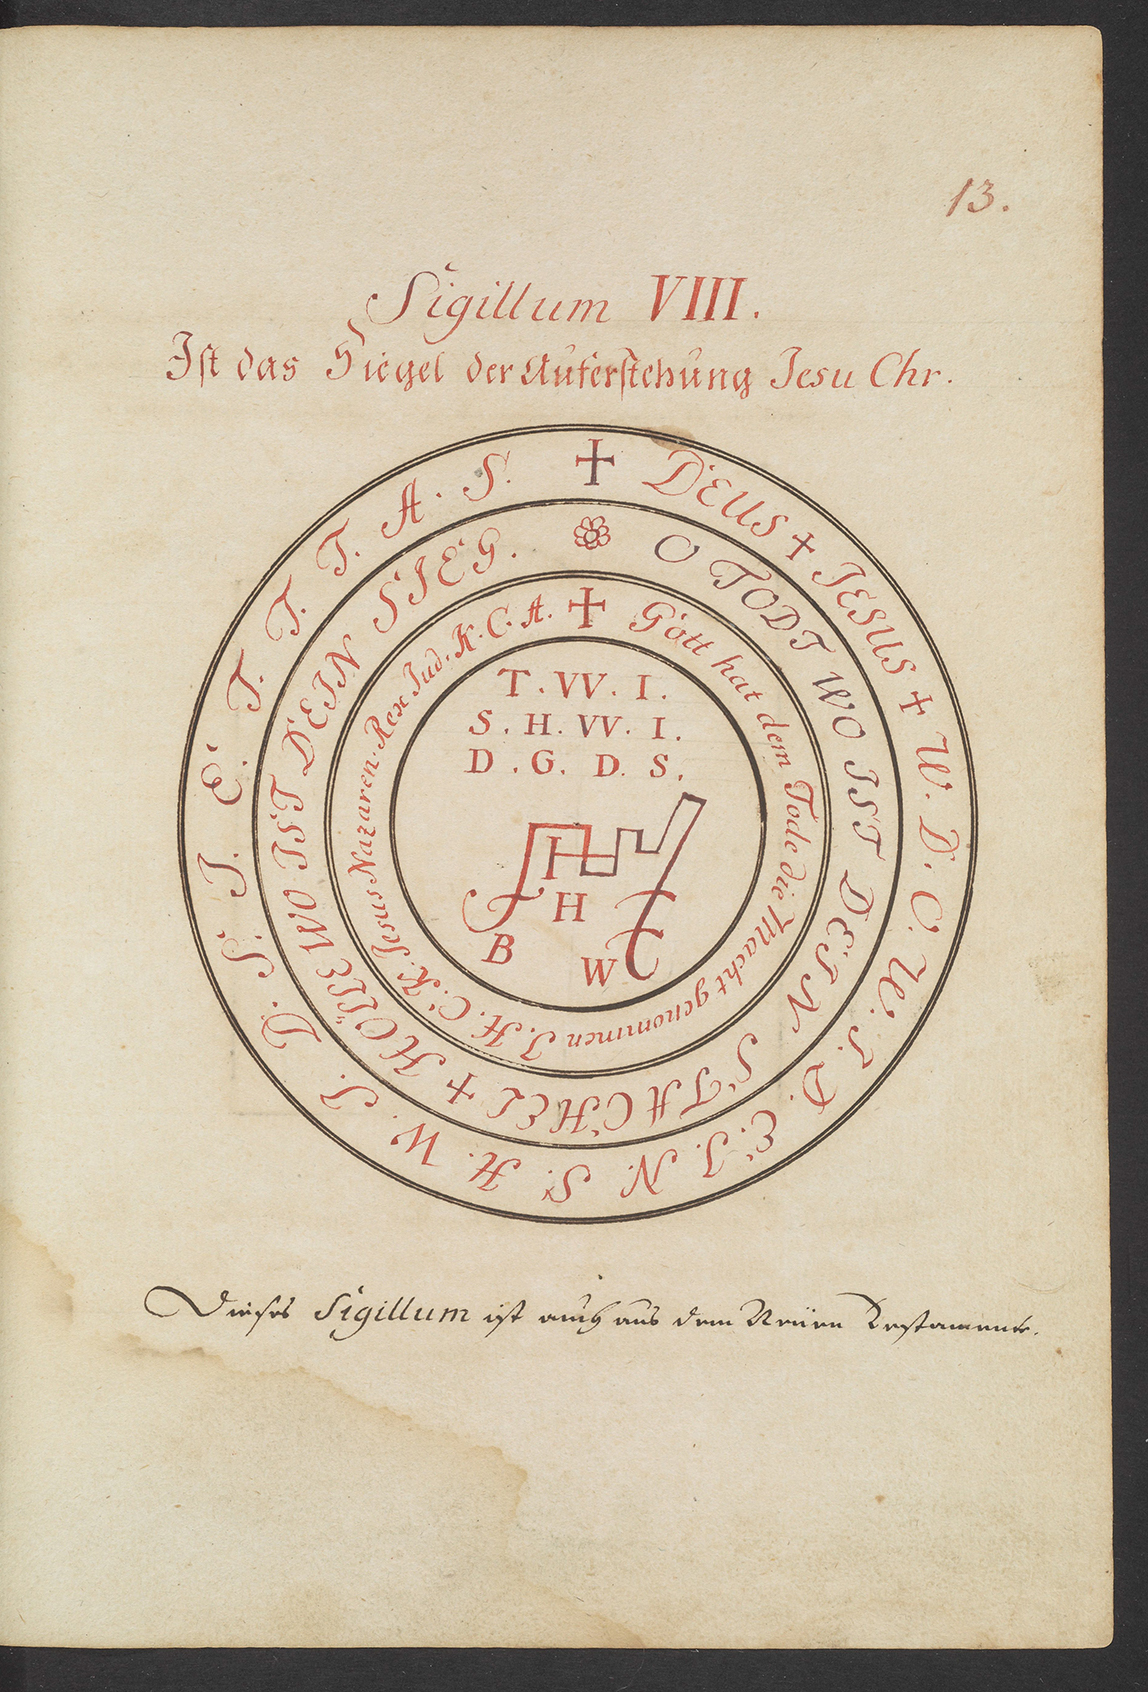 13.
Sigillum VIII.
Ist das Siegel der Auferstehung Jesu Chr.
✝ DEUS ✝ JESUS ✝ W. D. C. W. J. D. E. J. N. S. H. W. J. D. S. J. E. T. T. T. A. S.
O TODT WO IST DEIN STACHEL ✝ HÖLLE WO IST DEIN SIEG.
✝ Gott hat dem Tode die Macht genommen J. H. C. K. Jesus Nazaren. Rex Jud. K. C. A.
T. W. I.
S. H. W. I.
D. G. D. S.
I
H
B
W
Dieses Sigillum ist auch aus dem Neüen Testamente.